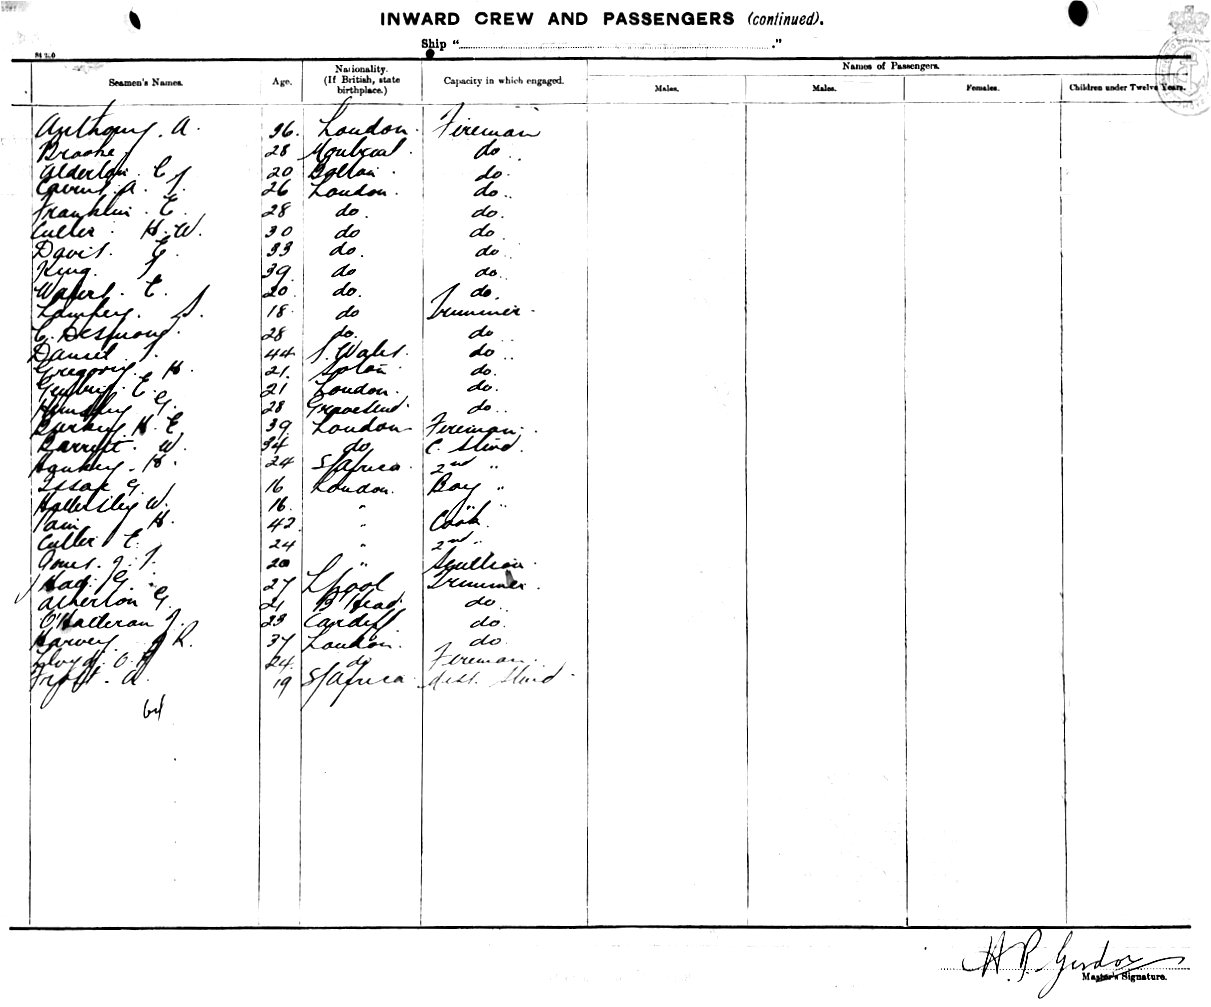 INWARD CREW AND PASSENGERS (continued).
Ship " "
Seamen's Names. Age. Nationality. (If British, state birthplace.) Capacity in which engaged. Names of Passengers.
Males. Males. Females. Children under Twelve Years.
Anthony. A. 36. London. Fireman
Brooke 28 Montreal. do
Alderton. C 20 Bolton. do.
26 London. do
Franklin. E. 28 do. do.
Cutler. H.W. 30 do do
Davis. E. 33 do. do
King. 39 do do
Waters. E. 20. do. do.
Lampey. S. 18. do Trimmer.
C. Desmond. 28 do. do
Daniel 44 S. Wales. do
Gregory. H. 21. Soton. do.
E. 21 London. do.
G. 28 Gravesend. do.
H. E. 39 London Fireman.
Barrett. W. 34 do C. Stwd.
Hankey. H. 24 S/Africa. 2nd "
Issak G. 16 London. Boy "
Hattersley W. 16. " " "
Pain H. 42 " Cook.
Cutler E. 24 " 2nd "
20 " Scullion.
G. 27 L'pool Trimmer.
Atherton G. 21 B'Head. do
O'Halleran J. 23 Cardiff do.
Harvey. J R. 37 London. do
Lloyd. O. 24. do Fireman.
Frost. A. 19 S/Africa. Asst. Stwd.
64
H. P. Gordon
Master's Signature.